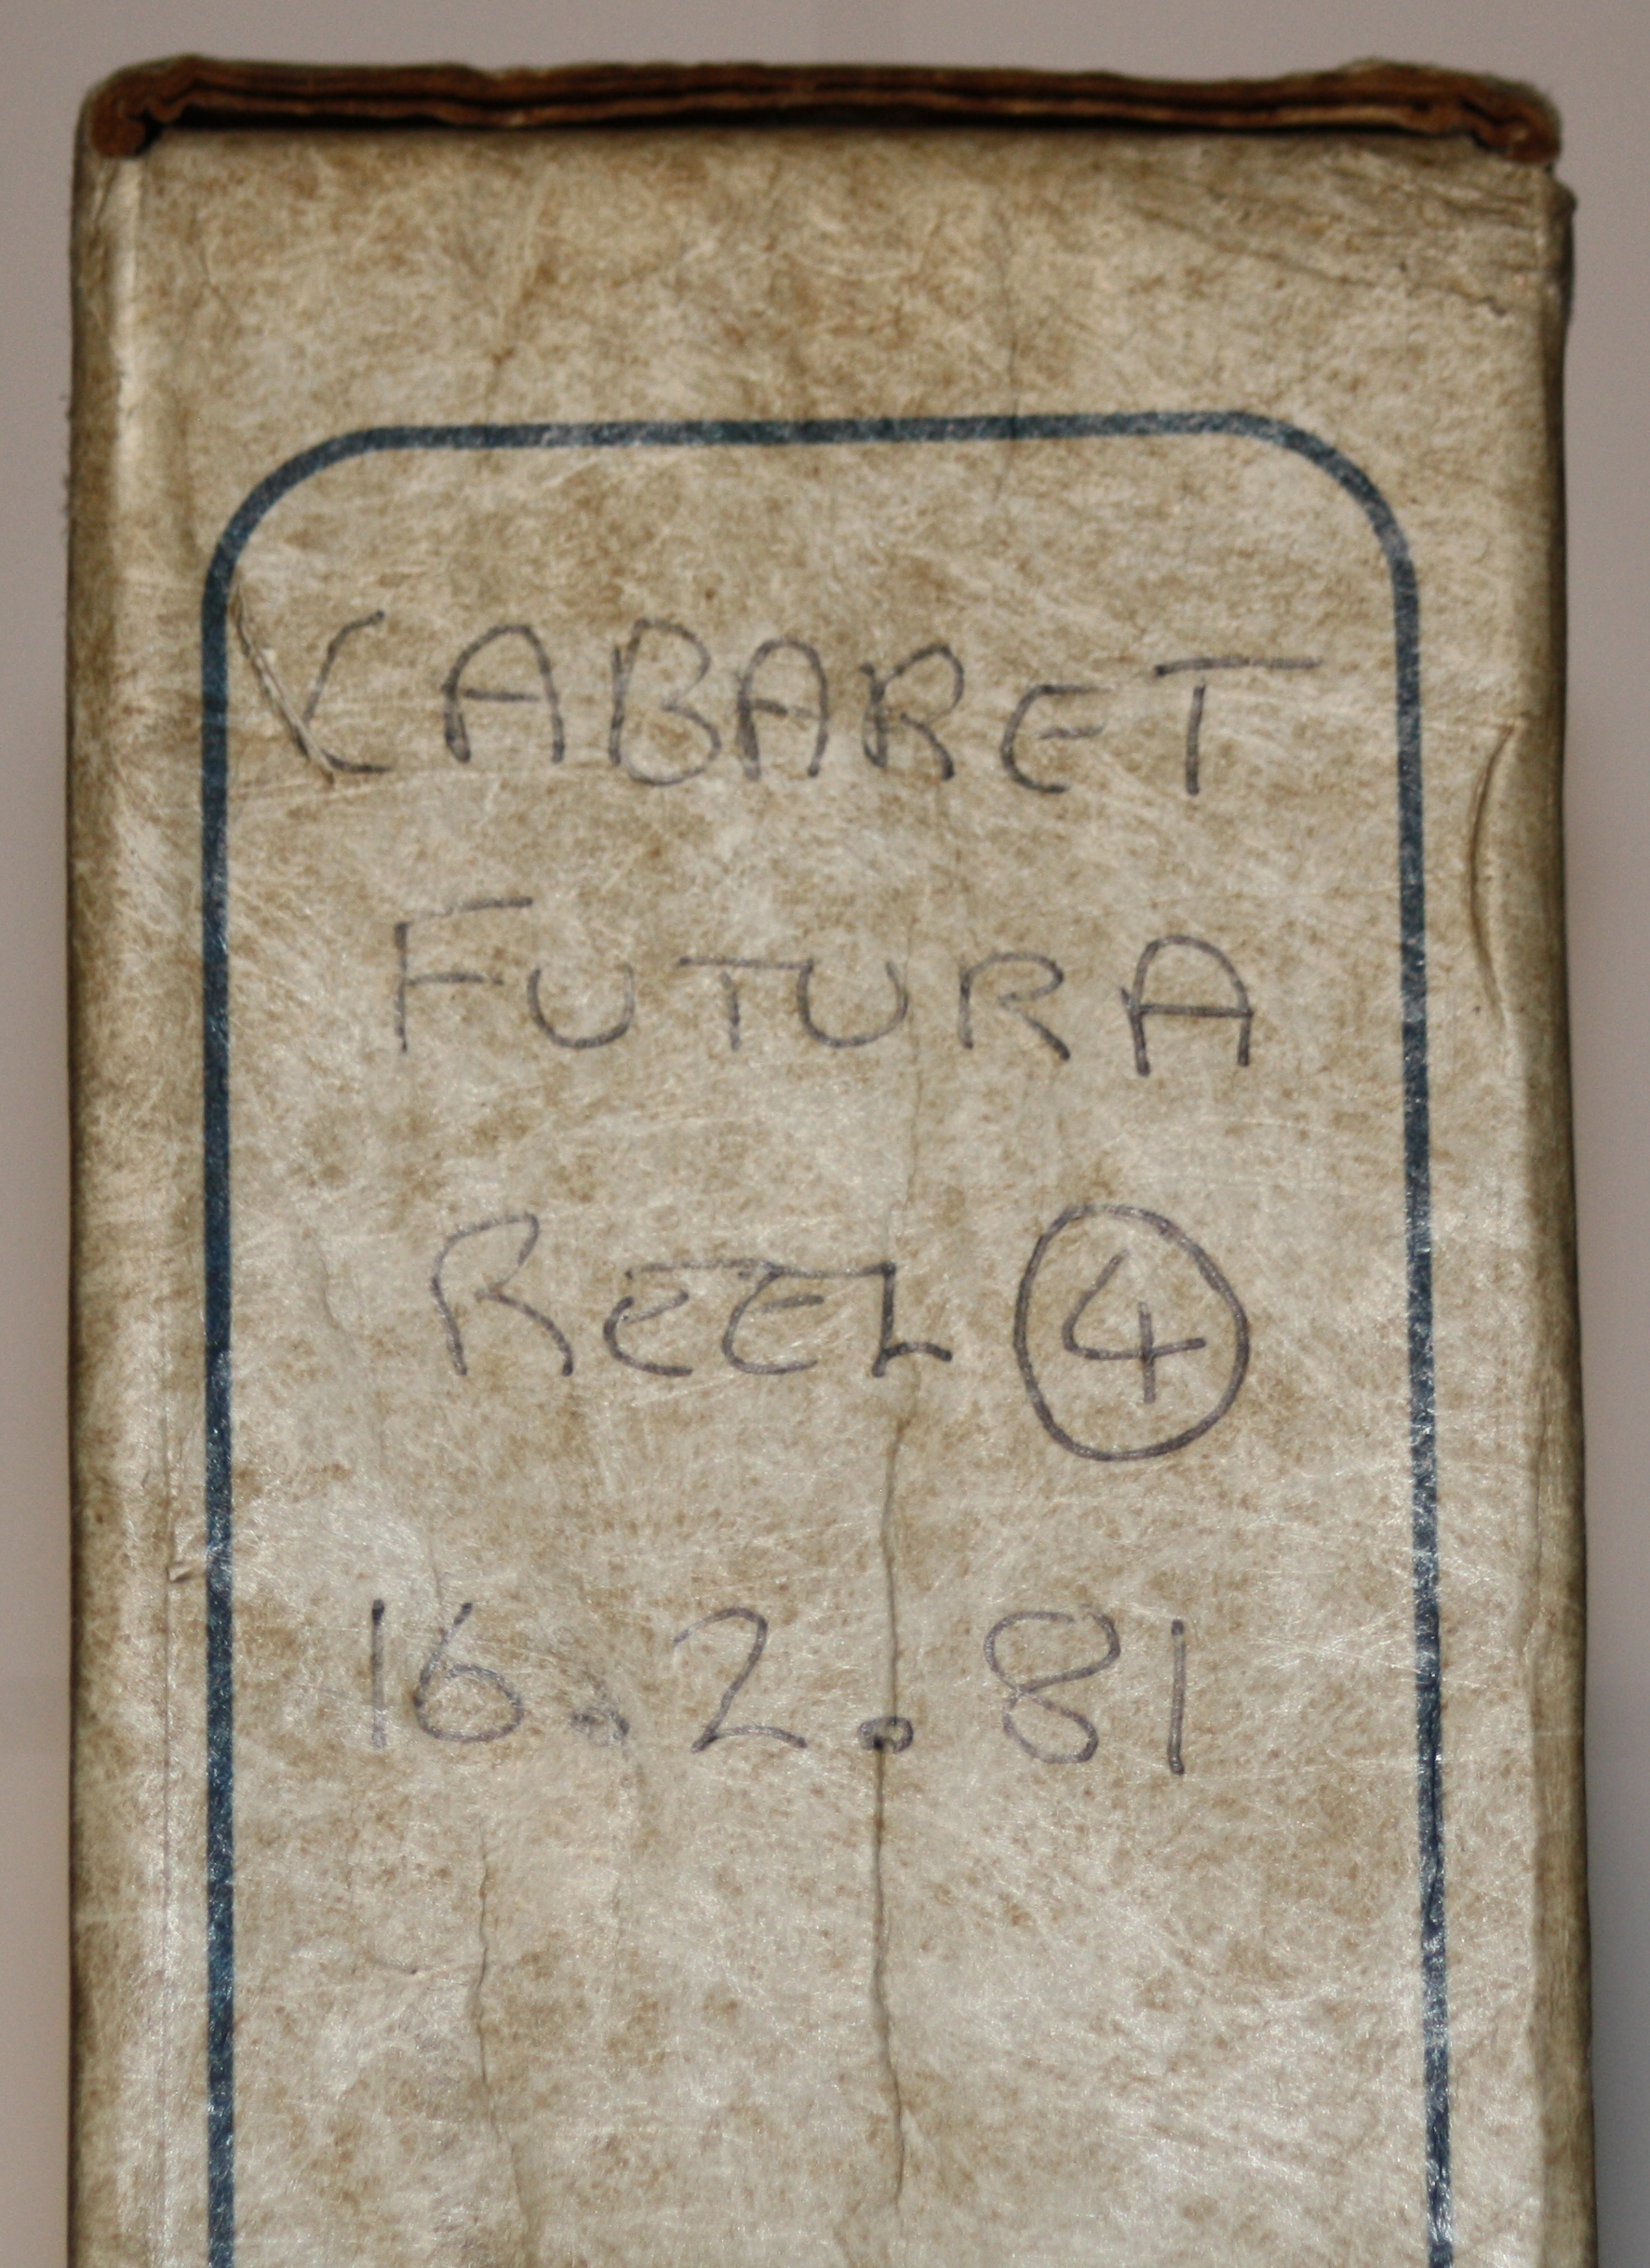 CABARET
FUTURA
REEL 4
16.2.81